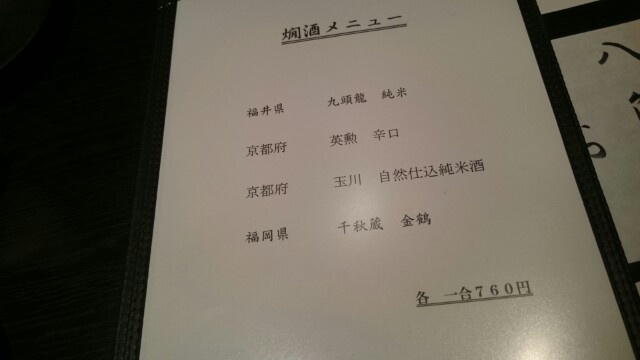 燗酒メニュー
福井県 九頭龍 純米
京都府 英勲 辛口
京都府 玉川 自然仕込純米酒
福岡県 千秋蔵 金鶴
各 一合760円